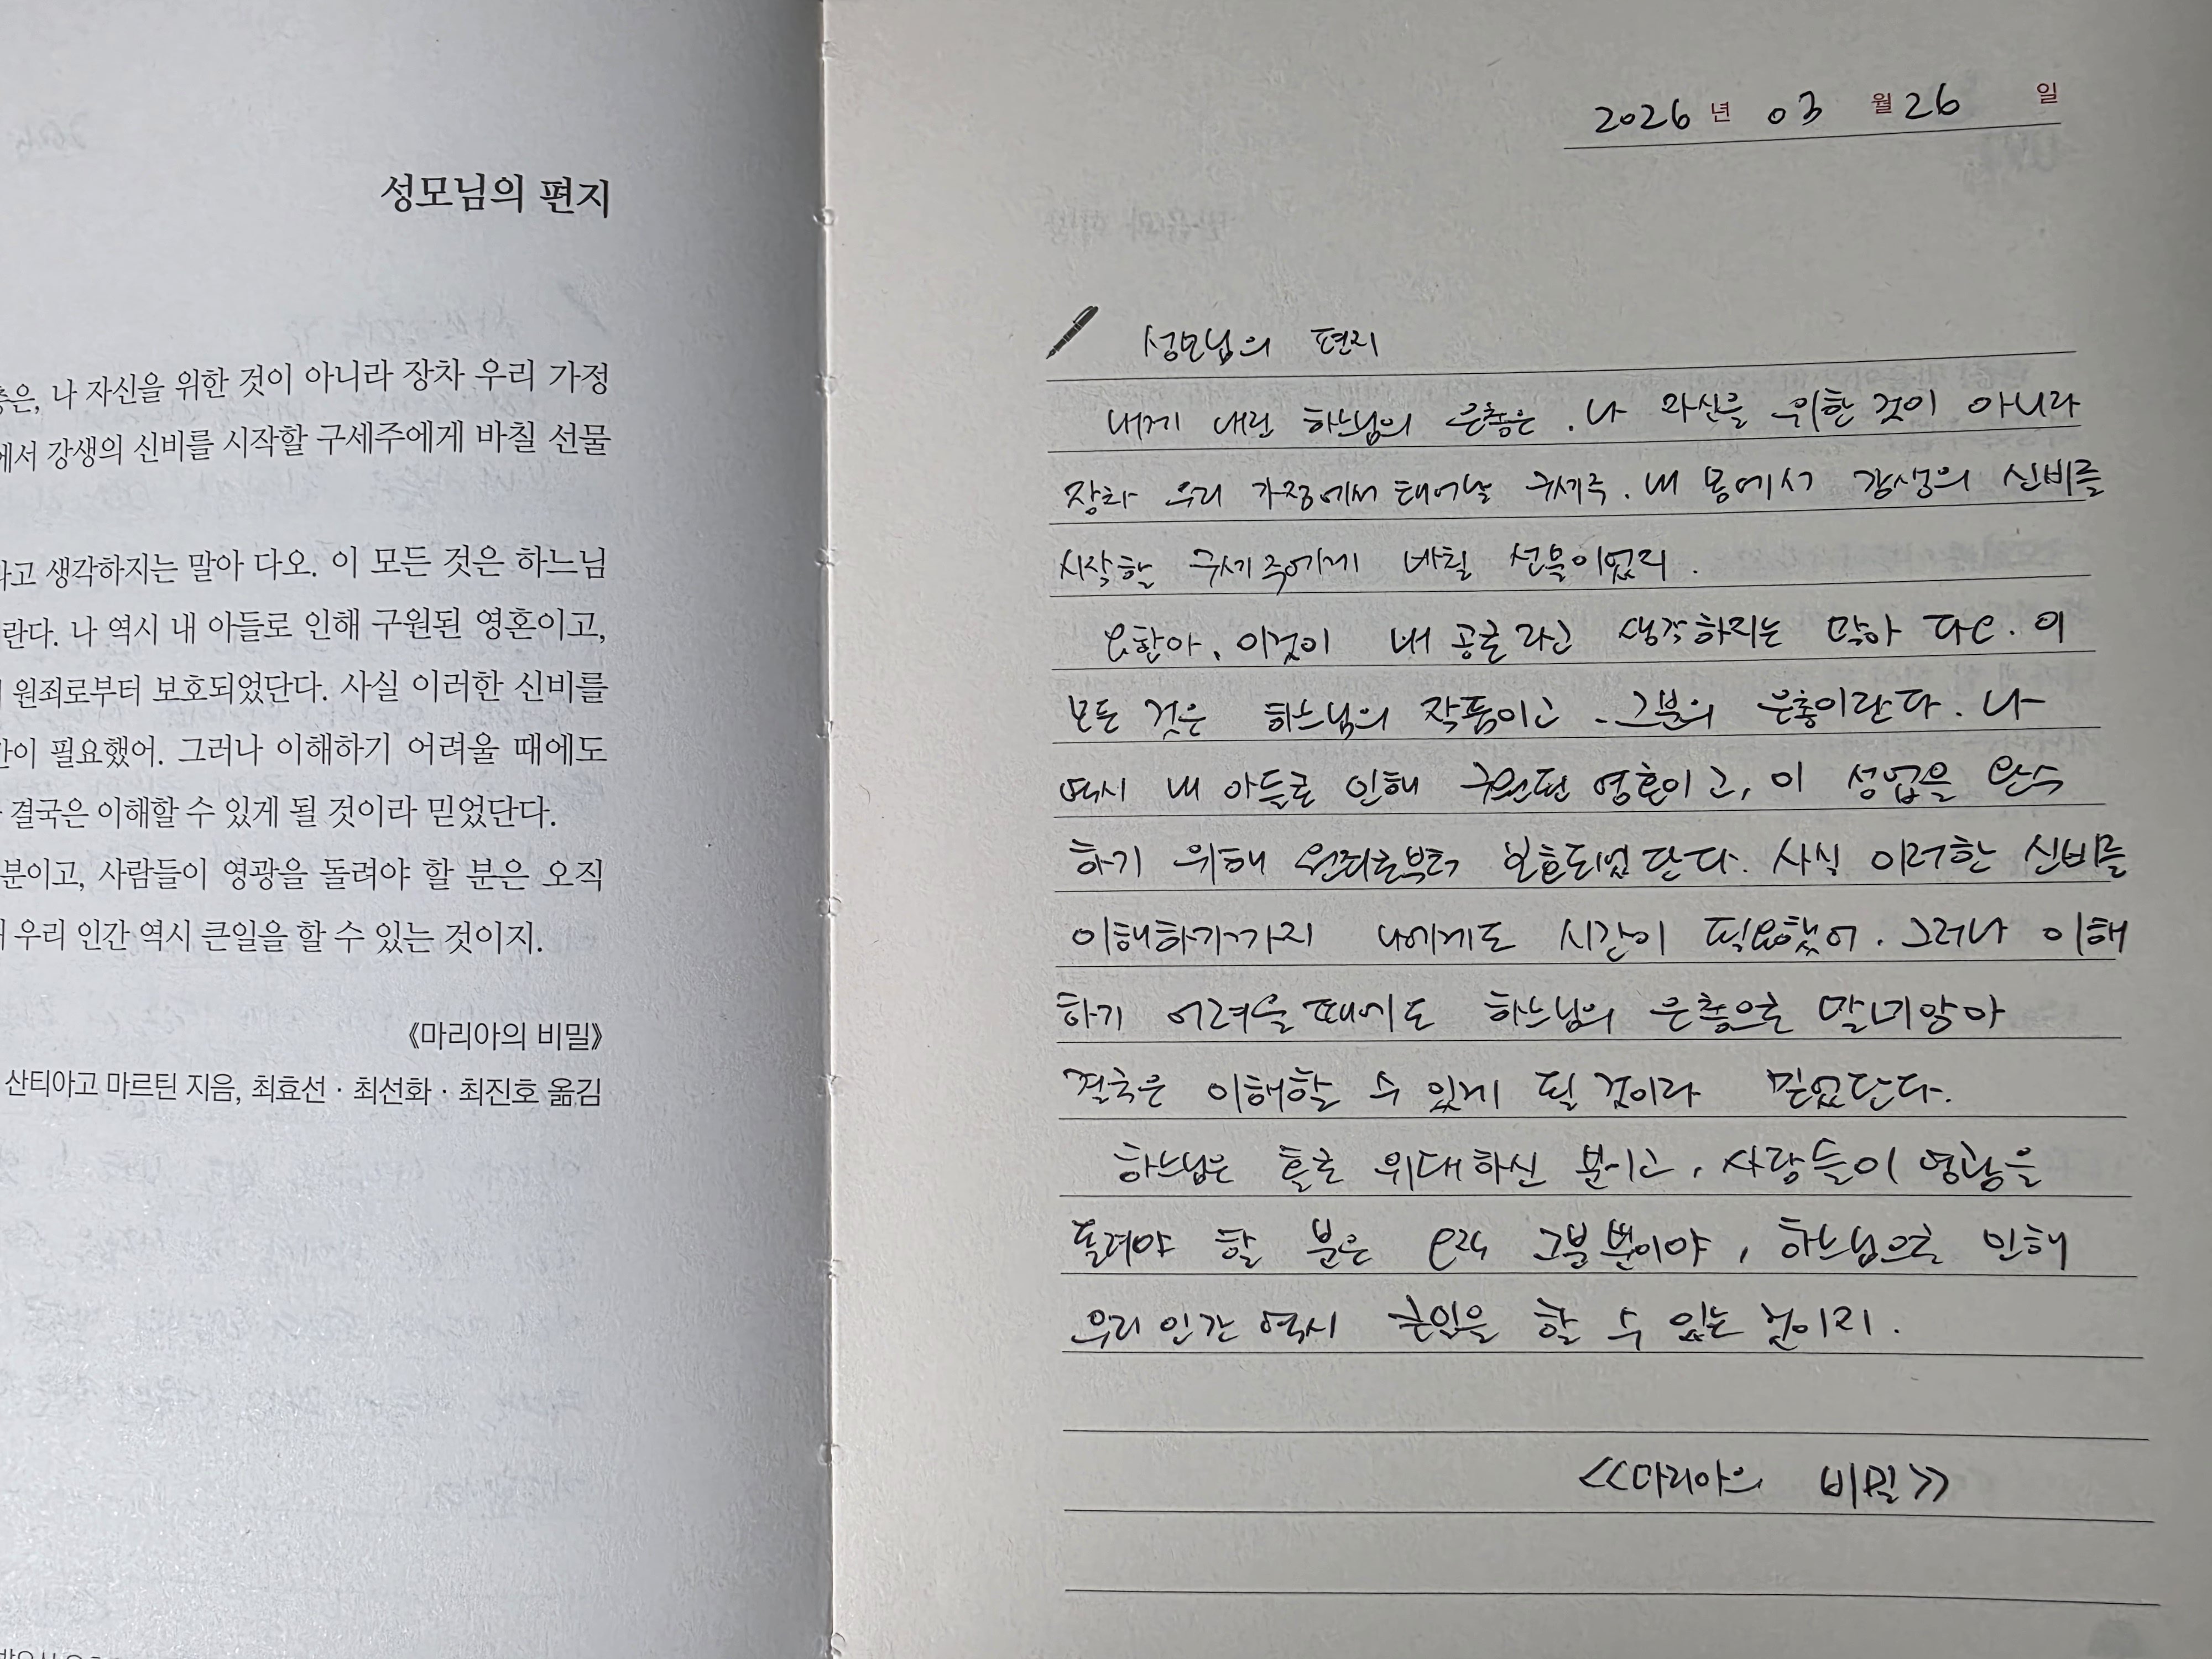 성모님의 편지
총은, 나 자신을 위한 것이 아니라 장차 우리 가정
에서 강생의 신비를 시작할 구세주에게 바칠 선물
라고 생각하지는 말아 다오. 이 모든 것은 하느님
란다. 나 역시 내 아들로 인해 구원된 영혼이고,
원죄로부터 보호되었단다. 사실 이러한 신비를
간이 필요했어. 그러나 이해하기 어려울 때에도
결국은 이해할 수 있게 될 것이라 믿었단다.
분이고, 사람들이 영광을 돌려야 할 분은 오직
우리 인간 역시 큰일을 할 수 있는 것이지.
《마리아의 비밀》
산티아고 마르틴 지음, 최효선 · 최선화 · 최진호 옮김
2026 년 03 월 26 일
성모님의 편지
내게 내린 하느님의 은총은, 나 자신을 위한 것이 아니라
장차 우리 가정에서 태어날 구세주, 내 몸에서 강생의 신비를
시작할 구세주에게 바칠 선물이었지.
요한아, 이것이 내 공로라고 생각하지는 말아 다오. 이
모든 것은 하느님의 작품이고, 그분의 은총이란다. 나
역시 내 아들로 인해 구원된 영혼이고, 이 성업을 완수
하기 위해 원죄로부터 보호되었단다. 사실 이러한 신비를
이해하기까지 나에게도 시간이 필요했어. 그러나 이해
하기 어려울 때에도 하느님의 은총으로 말미암아
결국은 이해할 수 있게 될 것이라 믿었단다.
하느님은 홀로 위대하신 분이고, 사람들이 영광을
돌려야 할 분은 오직 그분뿐이야, 하느님으로 인해
우리 인간 역시 큰일을 할 수 있는 것이지.
<<마리아의 비밀>>